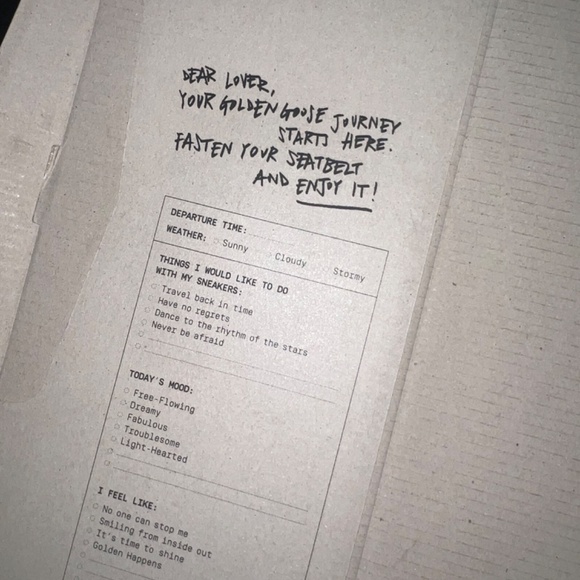 DEAR LOVER,
YOUR GOLDEN GOOSE JOURNEY
STARTS HERE.
FASTEN YOUR SEATBELT
AND ENJOY IT!
DEPARTURE TIME:
WEATHER: Sunny Cloudy Stormy
THINGS I WOULD LIKE TO DO
WITH MY SNEAKERS:
Travel back in time
Have no regrets
Dance to the rhythm of the stars
Never be afraid
TODAY'S MOOD:
Free-Flowing
Dreamy
Fabulous
Troublesome
Light-Hearted
I FEEL LIKE:
No one can stop me
Smiling from inside out
It's time to shine
Golden Happens